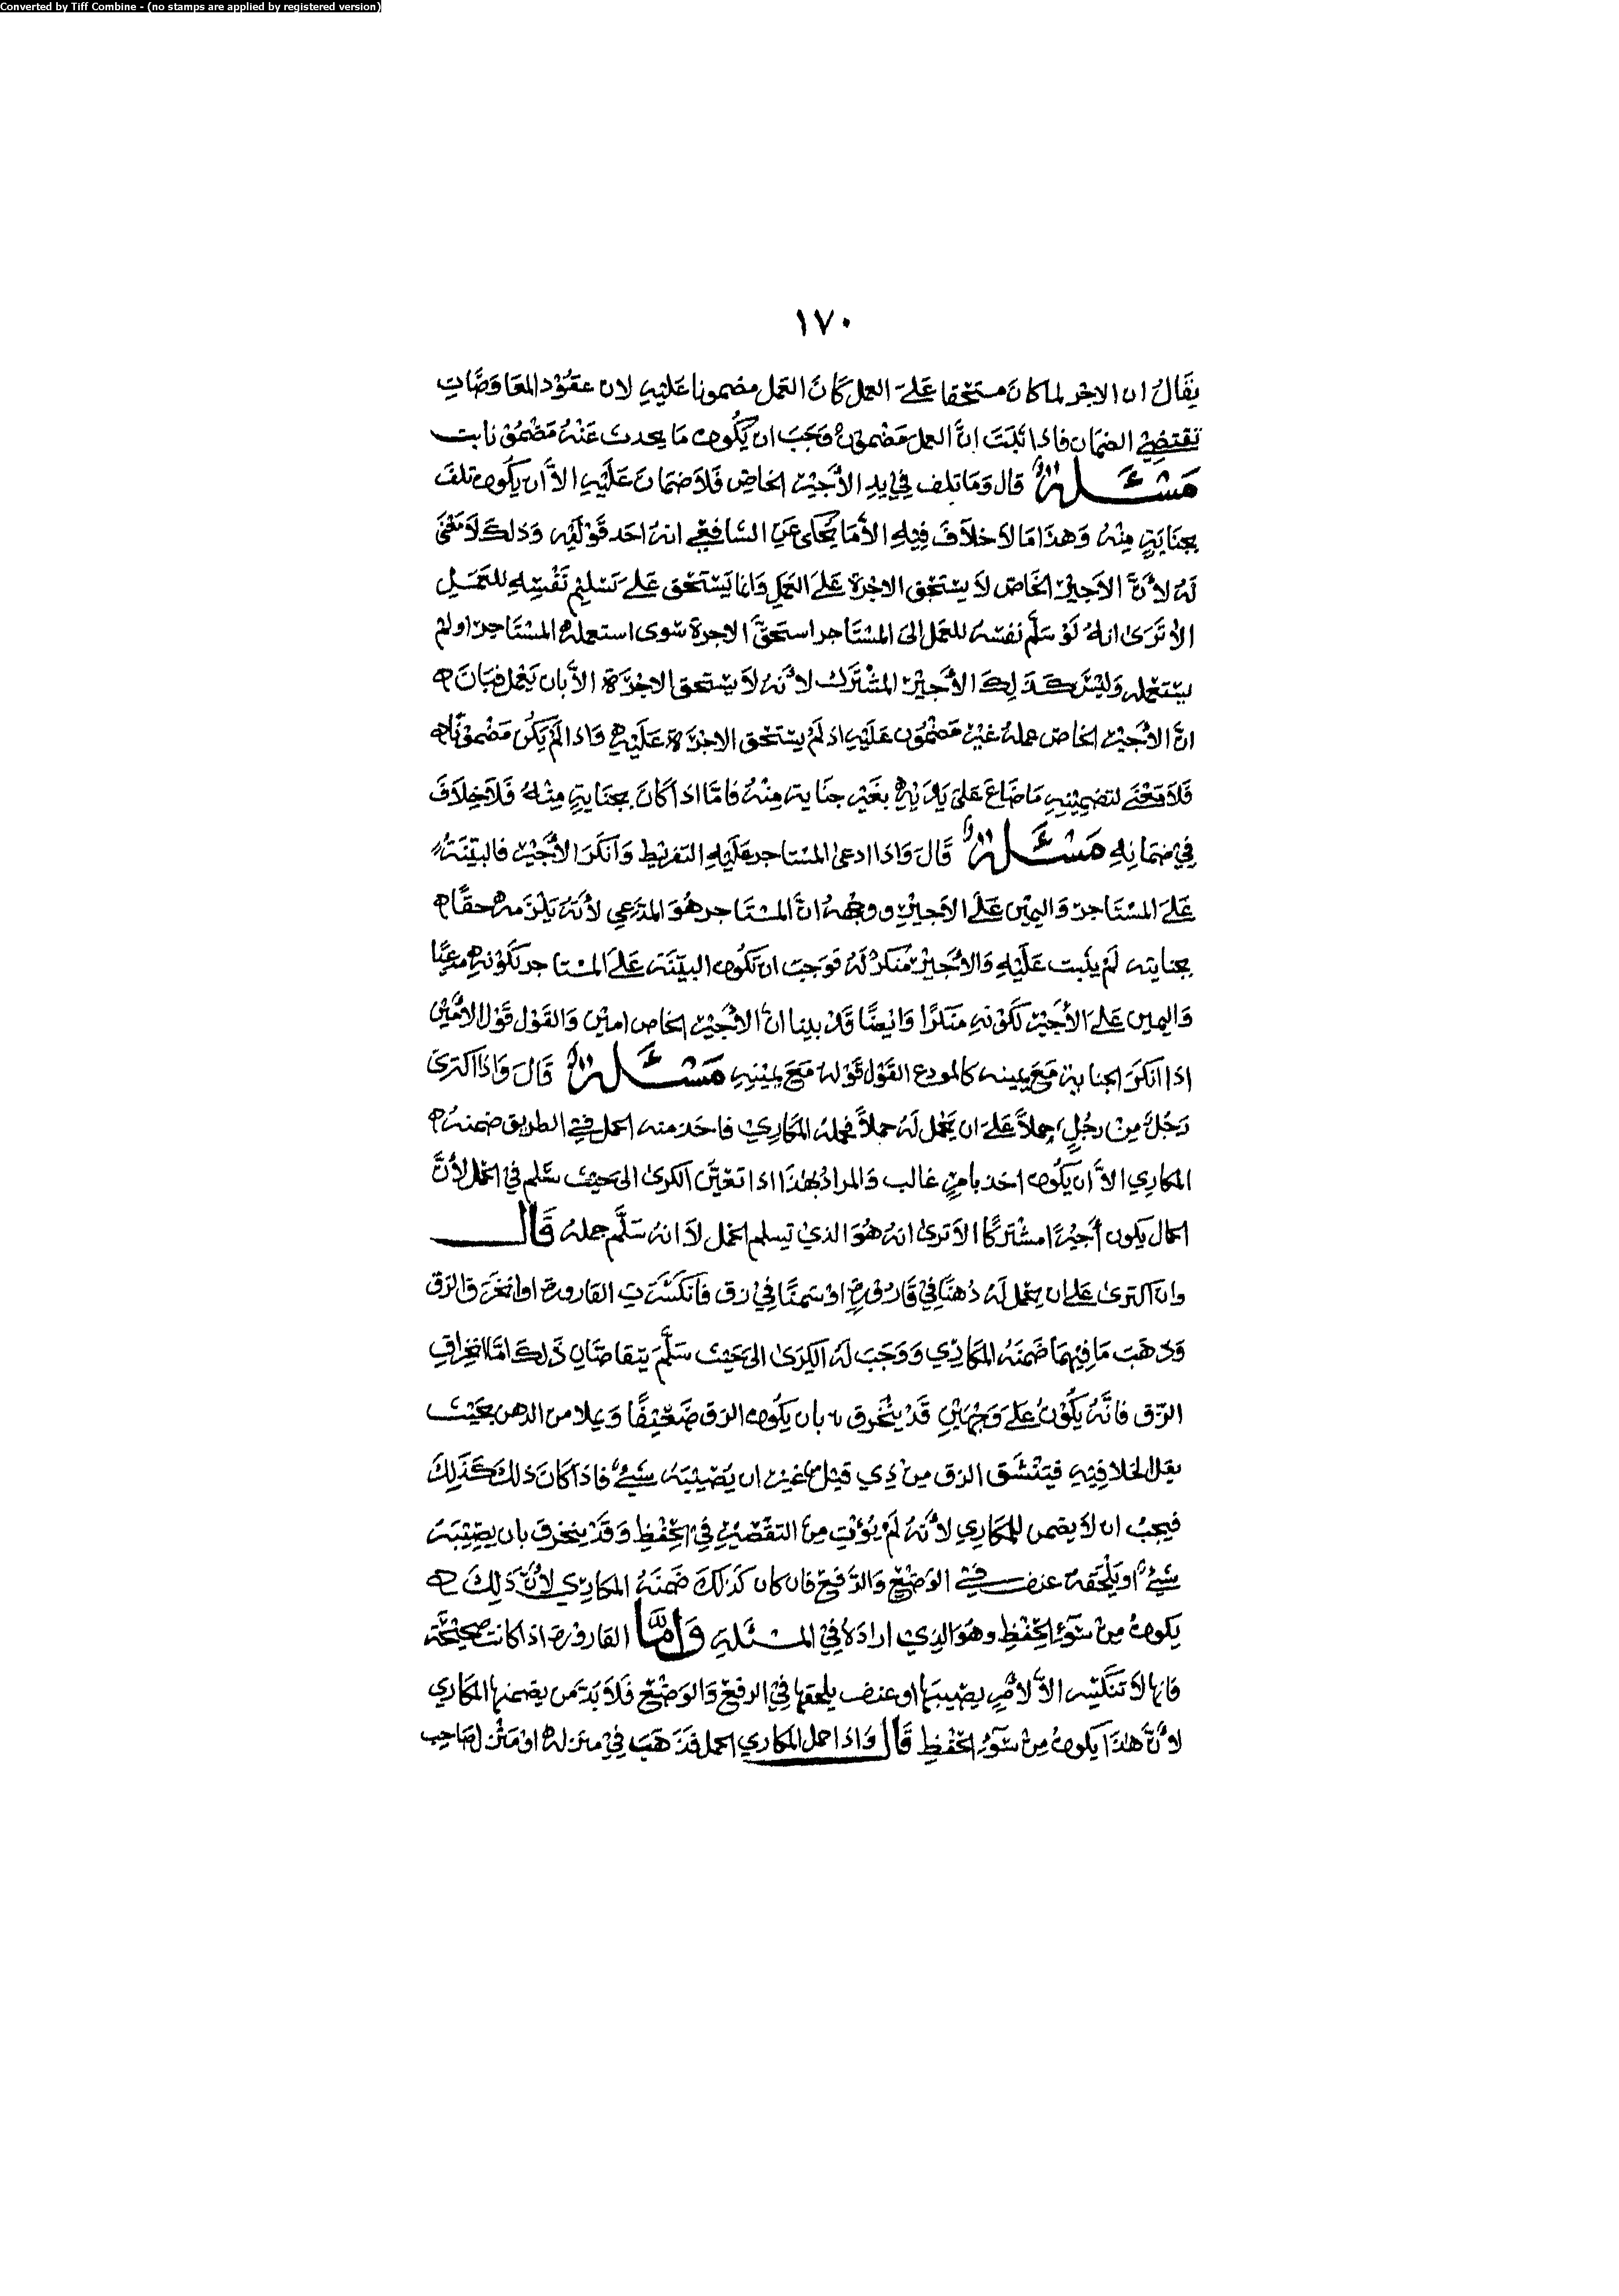 Converted by Tiff Combine - (no stamps are applied by registered version)
١٧٠
يقَالُ ان الاجْر لما كانَ مستحقا عَلىَ العمل كَانَ العَمل مضمونا عَليْهِ لان عقُوْد المعَاوَضَّات
تقتضِيْ الضمَان فاذا ثَبَتَ انَّ العمل مَضْموْنٌ وَجَبَ ان يَّكُون مَا يحدث عَنْهُ مَضْمُوْنا بت
مَسْئَلَةٌ قال وَمَا تلف فِيْ يدِ الأَجيْرِ الخاصِ فَلاَ ضمَانَ عَلَيْهِ الاَّ ان يكُون تلفَ
بجنَايَةٍ مِنْهُ وَهذا مَا لاَ خلاَفَ فِيْهِ الاَّ مَا يُحْكى عَنِ الشَافِعِي انهُ احَد قَوْليْهِ وَذلكَ لاَ مَعْنىَ
لَهُ لأَنَّ الاَجيْرَ الخَاصَ لاَ يسْتحِق الاجْرَةَ عَلىَ العَمَلِ وَانما يَسْتَحِق عَلىَ تَسْليْمِ نَفْسِهِ للعَمَلِ
الاَ تَرَىْ انهُ لَوْ سَلَّم نفسَهُ للعمَل الىَ المسْتَاجر استَحَقَّ الاجرةَ سَوى استعملهُ المسْتَاجر اولم
يستَعْمله وَليْسَ كَذَلِكَ الأَجيْرُ المشْترَك لأَنهُ لاَ يستَحق الاجْرَةَ الاَّ بان يَعْمل فبَانَ
انَّ الأَجيْرَ الخاصَ عملهُ غيْر مَضْمُون عَليْهِ اذ لَمْ يستَحق الاجْرَةَ عَلَيْهِ وَاذا لَمْ يَكُن مَضْمُوْنًا
فَلاَ مَعْنَى لتضمِيْنِهِ مَا ضَاعَ عَلىَ يَدَيْهِ بغَيْر جنَايةٍ مِنْهُ فامَّا اذَا كَانَ بجنَايةٍ مِنْهُ فَلاَ خِلاَفَ
فِيْ ضمَانِهِ مَسْئَلَةٌ قَالَ وَاذا ادعىَ المسْتَاجر عَلَيْهِ التفريْط وَانْكَرَ الأَجيْرُ فالبيّنَةُ
عَلىَ المسْتَاجر وَاليميْن عَلىَ الاَجيْرِ ووجْههُ انَّ المسْتَاجر هُوَ المدَّعِي لأَنَهُ يَلْزَمه حقًّا
بجنايته لَمْ يثبت عَلَيْهِ وَالأَجيْر مُنكرٌ لَهُ فوَجَبَ ان تكُون البيّنَة عَلىَ المسْتاجر لكَوْنهِ مدعيًّا
وَاليمين عَلىَ الأَجيْر لكَوْنهِ منكرًا وَايْضًا قَدْ بينا انَّ الأَجيْر الخاص اميْن وَالقَوْل قَوْل الأَميْن
اذا انكَرَ الجناية مَعَ يمينه كالمودع القَوْل قَوْله مَعَ يمْينهِ مَسْئَلَةٌ قَالَ وَاذا اكترَى
رَجُلٌ مِنْ رجُلٍ جملاً عَلىَ ان يَحْمل لَهُ حملاً فحملهُ المكَارِيْ فاخَذ منه الحمل فِيْ الطريق ضمنهُ
المكارِيْ الاَّ ان يكُون اخذ بامرٍ غالب وَالمرادُ بهٰذَا اذا تعيَّن الكرى الىَ حَيْث سَلَّم فِي الحمل لأَنَّ
الحمال يكون أجيْرًا مشْترَكًا الاَ ترىْ انهُ هُوَ الذيْ تسلم الحمل لاَ انهُ سَلَّم جملهُ قَالَ
وان اكترىْ عَلىَ ان يحمل لَهُ دُهنًا فِيْ قَارُوْرةٍ اوْ سَمنًا فِيْ زق فانكَسَرَتِ القارورة اوانخَرَقَ الزق
وَذهَبَ مَا فِيْهِمَا ضَمنَهُ المكَارِيْ وَوَجَبَ لَهُ الكِرَىْ الىَ حَيْث سَلَّمَ يتقاصَّانِ ذَلكَ امَّا انخِرَاق
الزّق فانَّهُ يكُوْنُ عَلىَ وَجْهَيْنِ قَدْ ينْخَرق بان يكُون الزق ضَعيْفًا وَيملا من الدهن بحَيْث
يقل الخلا فِيْهِ فيَنْشَق الزق مِنْ ذِي قبَل من غيْر ان يَصِيْبَهُ شَيْءٌ فاذا كَانَ ذلكَ كَذَلِكَ
فيجبُ ان لاَ يضمن المكَارِي لأَنهُ لَمْ يُؤْت مِنَ التقْصيْرِ فِيْ الحفظِ وَقَدْ ينخرق بان يصِيْبَهُ
شَيْءٌ اويَلْحَقَه عنف فِيْ الوَضْعِ وَالدَّفعِ فان كان كذلكَ ضَمنَهُ المكَارِيْ لأَنَّ ذَلِكَ
يكونُ مِنْ سَوْءِ الحفْظِ وهوَ الذِيْ ارادَهُ فِيْ المسْئَلةِ وَامَّا القارورة اذا كانت صحيْحَة
فانها لاَ تَنكَسِر الاَّ لأَمْرٍ يصيبها اوعنف يلحقها فِيْ الرفعِ وَالوَضْعِ فَلاَ بَد من يضمنها المكَاري
لأَنَّ هٰذَا يكونُ مِنْ سَوْءِ الحفْظِ قَالَ وَاذا حمل المكَاري الحمل فذَهَبَ فِيْ منزله اوْ مَنزل لصَاحب